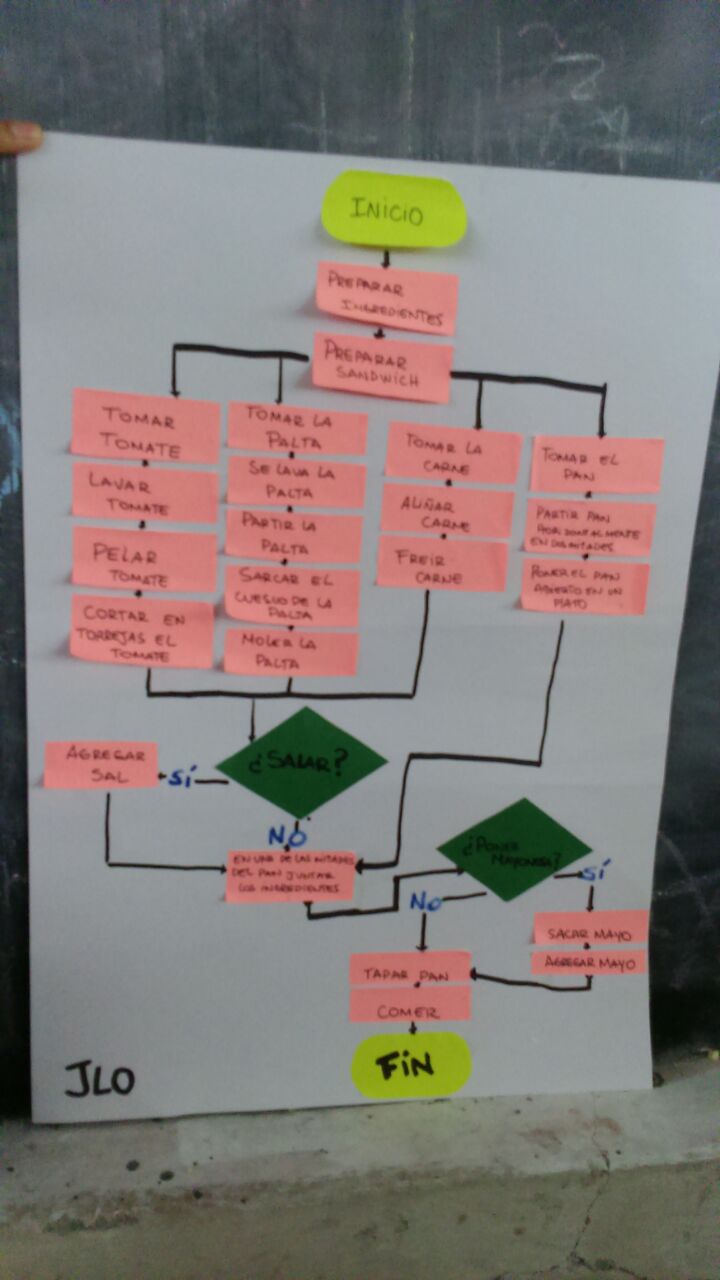 INICIO
PREPARAR
INGREDIENTES
PREPARAR
SANDWICH
TOMAR
TOMATE
LAVAR
TOMATE
PELAR
TOMATE
CORTAR EN
TORREJAS EL
TOMATE
TOMAR LA
PALTA
SE LAVA LA
PALTA
PARTIR LA
PALTA
SARCAR EL
CUESCO DE LA
PALTA
MOLER LA
PALTA
TOMAR LA
CARNE
ALIÑAR
CARNE
FREIR
CARNE
TOMAR EL
PAN
PARTIR PAN
HORIZONTALMENTE
EN DOS MITADES
PONER EL PAN
ABIERTO EN UN
PLATO
¿SALAR?
SÍ
AGREGAR
SAL
NO
EN UNA DE LAS MITADES
DEL PAN JUNTAR
LOS INGREDIENTES
¿PONER
MAYONESA?
SÍ
NO
SACAR MAYO
AGREGAR MAYO
TAPAR PAN
COMER
FIN
JLO